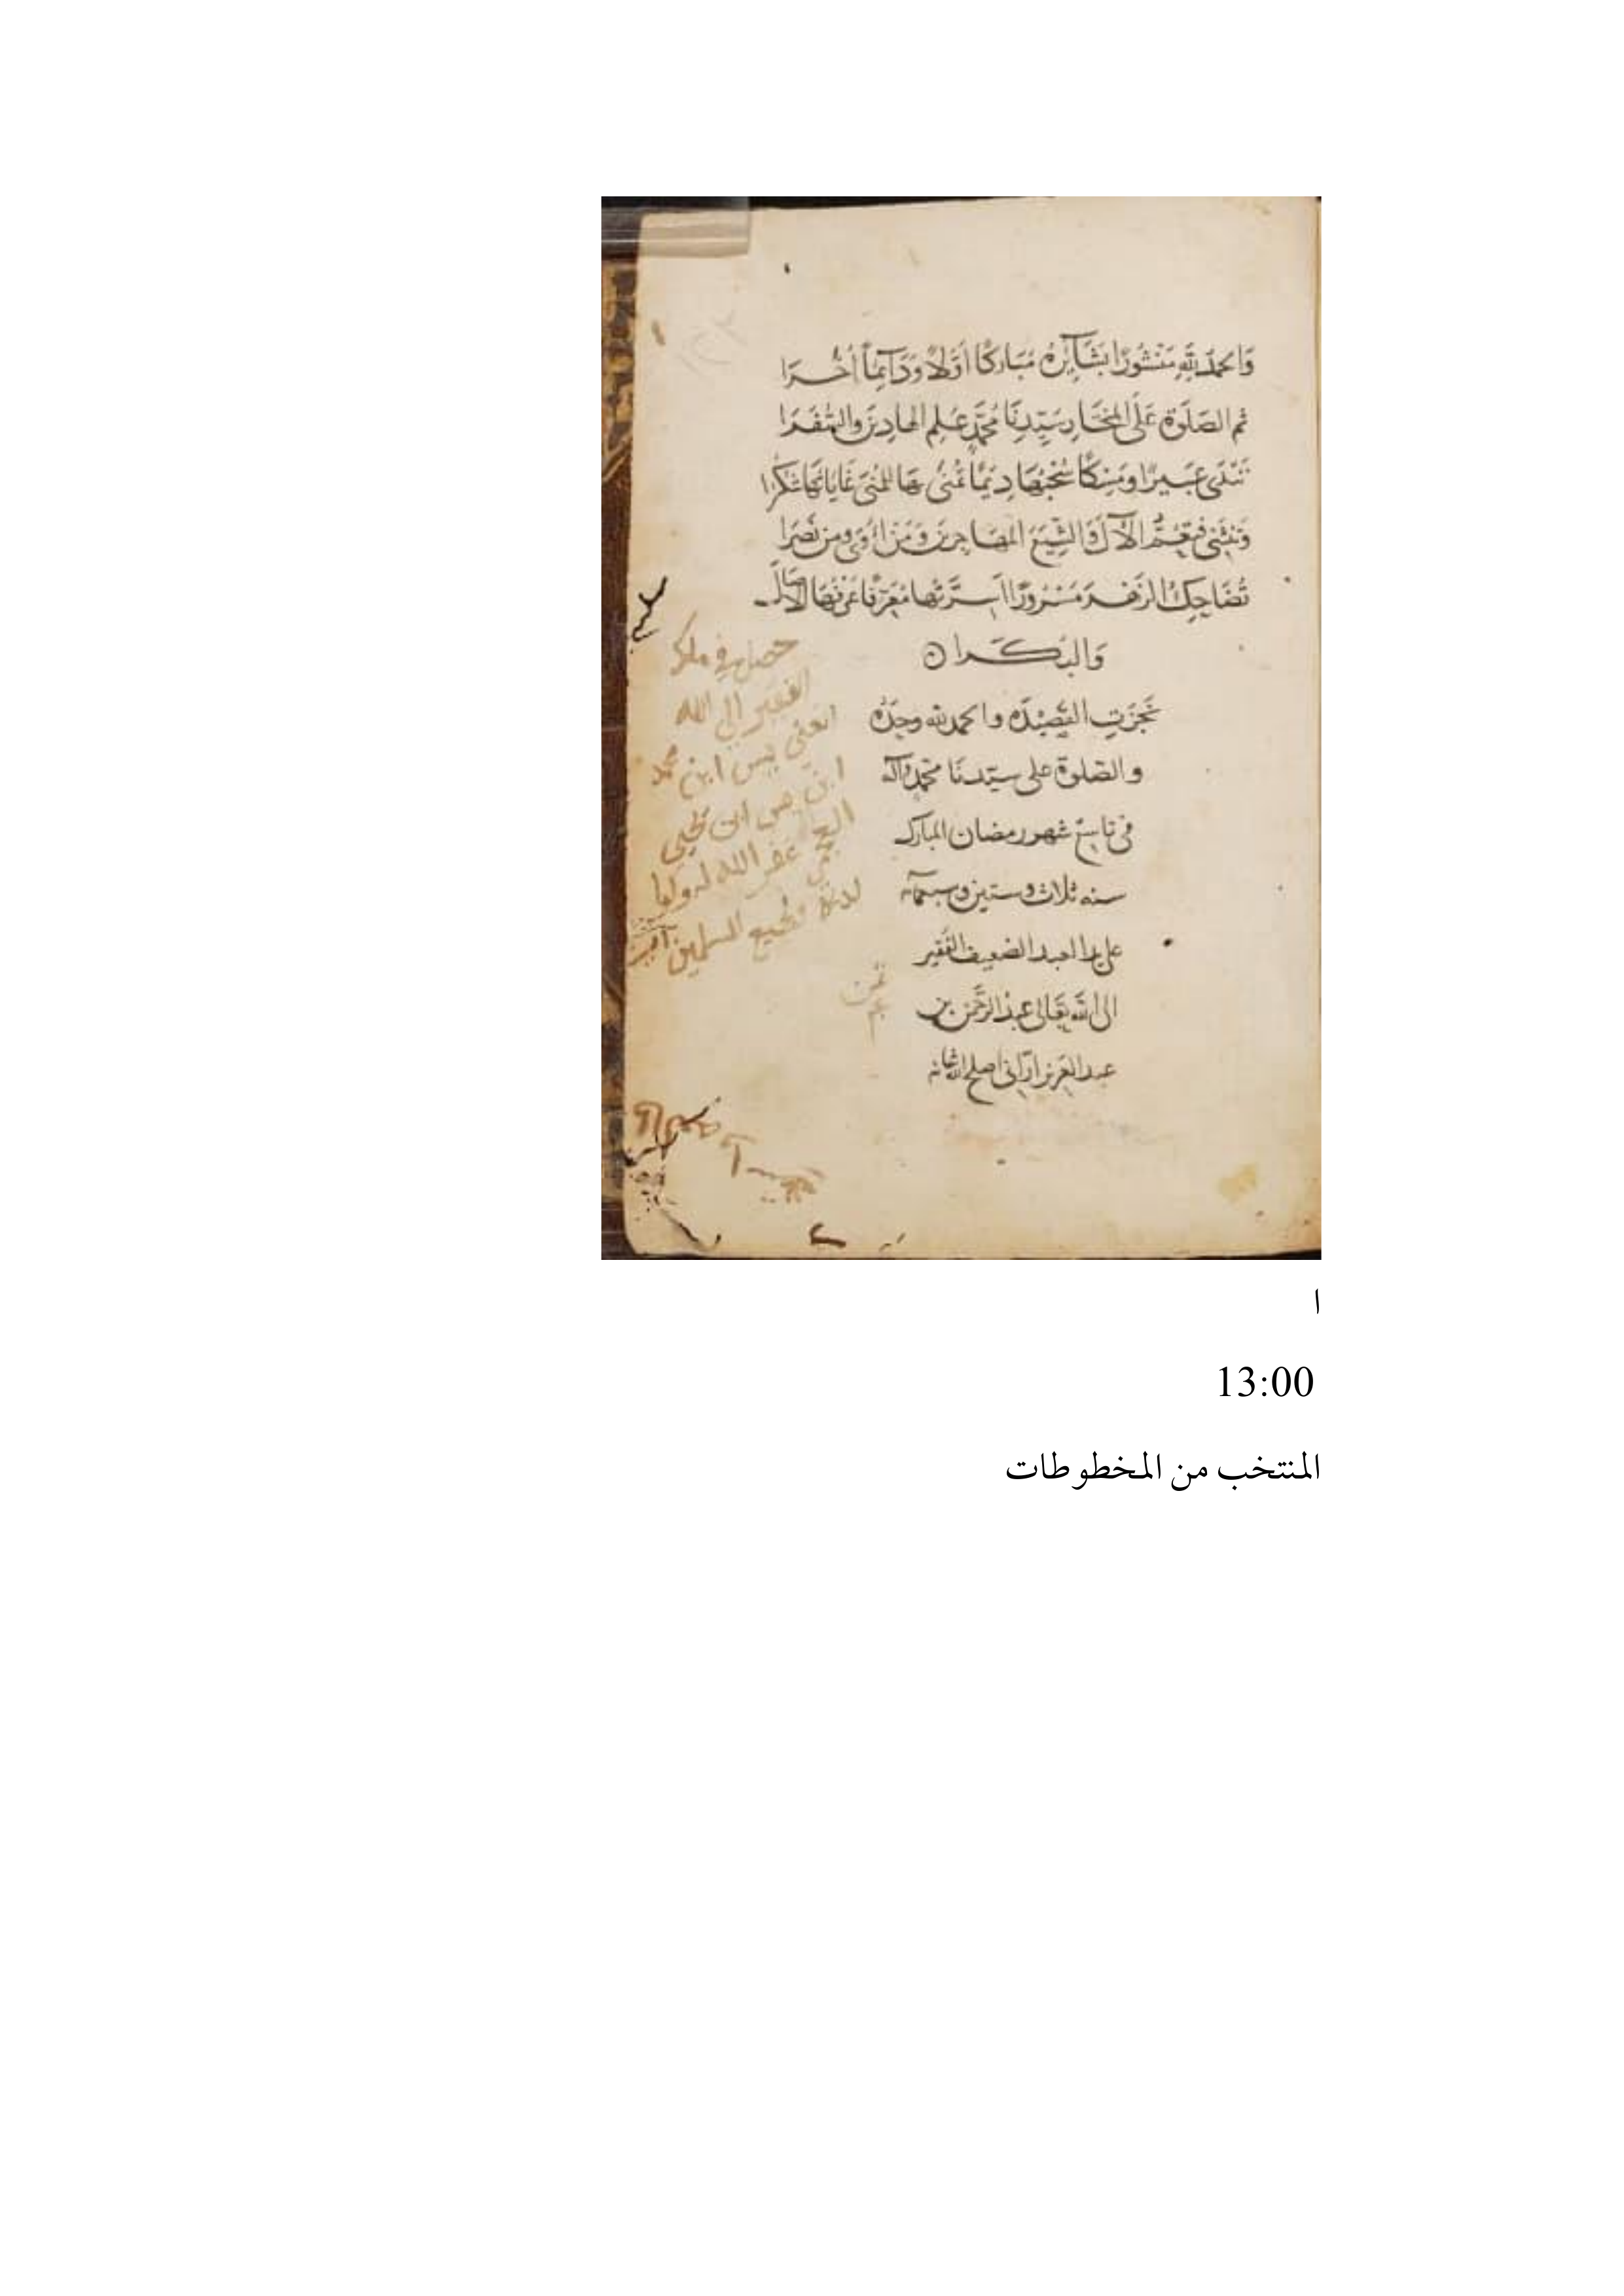 وَالحمدُ لِلّٰهِ مَنْشُورًا بَشَآئِرُهُ مُبَاركًا أوّلًا وَدَآئِمًا أُخَرَا
ثم الصَلٰوة عَلَى المختَارِ سَيِّدِنَا مُحَمَّدٍ عَلمِ الهادِينَ وَالسُّفَرَا
تَنْدَى عَبيرًا ومِسْكًا سُحْبُهَا دِيَمًا تُمْنَى بهَا لِلْمُنَى غَايَاتُهَا شُكُرَا
وَتنثَنى فتعُمُّ الآلَ وَالشِّيَعَ المهَاجرينَ وَمَنْ آوَى ومن نَصَرَا
تُضَاحِكُ الزَهْرَ مَسْرُورًا أسِرَّتُها مُعَرّفًا عَرْفُهَا الآصَالَ
وَالبُكَرَا
نَجَزَتِ القصِيْدَه والحمد لله وحْدَه
والصّلوة على سيّدنَا محمّد وآله
فى تاسع شهر رمضان المبارك
سنه ثلاث وستين وسبعمآئه
على يد العبد الضعيف الفقير
الى الله تعَالى عبد الرَّحمٰن بن
عبد العزيز ارّانى اصلح الله شانه
حصل في ملك
الفقير الى الله
الغني يس ابن محمد
ابن يس ابن يحيى
غفر الله له ولوا
لديه ولجميع المسلمين آمين
ا
13:00
المنتخب من المخطوطات